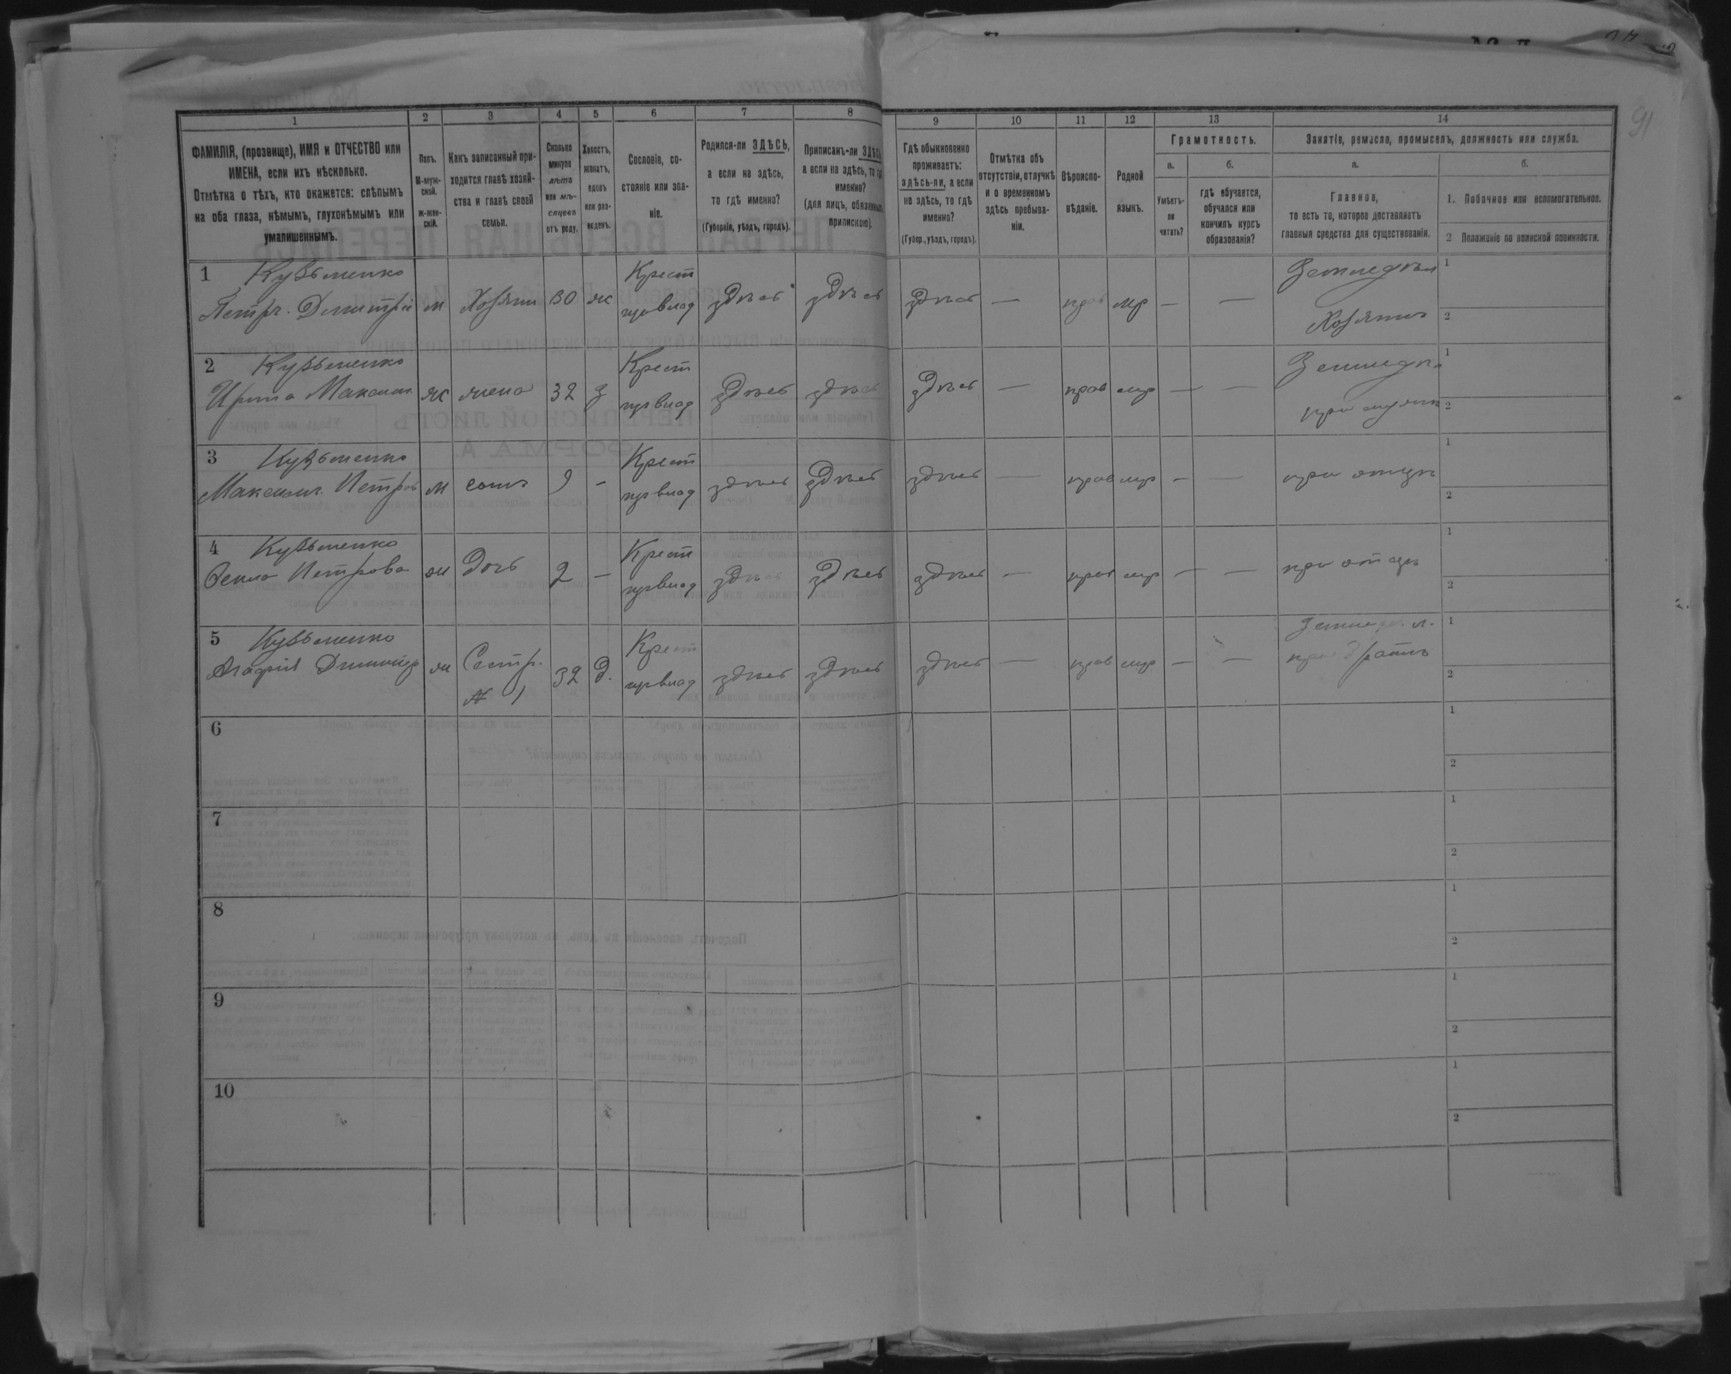 91
1 2 3 4 5 6 7 8 9 10 11 12 13 14
ФАМИЛІЯ, (прозвище), ИМЯ и ОТЧЕСТВО или
ИМЕНА, если ихъ нѣсколько.
Отмѣтка о тѣхъ, кто окажется: слѣпымъ
на оба глаза, нѣмымъ, глухонѣмымъ или
умалишеннымъ.
Полъ.
М-муж-
ской.
ж-жен-
скій.
Какъ записанный при-
ходится главѣ хозяй-
ства и главѣ своей
семьи.
Сколько
минуло
лѣтъ
или мѣ-
сяцевъ
отъ роду.
Холостъ,
женатъ,
вдовъ
или раз-
веденъ.
Сословіе, со-
стояніе или зва-
ніе.
Родился-ли ЗДѢСЬ,
а если не здѣсь,
то гдѣ именно?
(Губернія, уѣздъ, городъ).
Приписанъ-ли ЗДѢСЬ
а если не здѣсь, то гдѣ
именно?
(для лицъ, обязанныхъ
припискою).
Гдѣ обыкновенно
проживаетъ:
здѣсь-ли, а если
не здѣсь, то гдѣ
именно?
(Губер., уѣздъ, городъ).
Отмѣтка объ
отсутствіи, отлучкѣ
и о временномъ
здѣсь пребыва-
ніи.
Вѣроиспо-
вѣданіе.
Родной
языкъ.
Грамотность.
а.
Умѣетъ-
ли
читать?
б.
гдѣ обучается,
обучался или
кончилъ курсъ
образованія?
Занятіе, ремесло, промыселъ, должность или служба.
а.
Главное,
то есть то, которое доставляетъ
главныя средства для существованія.
б.
1. Побочное или вспомогательное.
2 Положеніе по воинской повинности.
1 Кузьменко Крест Земледѣл 1
Петръ Димитрі м Хозяин 30 ж првлад здѣсь здѣсь здѣсь — прав мр — — Хозяинъ 2
2 Кузьменко Крест Земледѣ 1
Ирина Максим ж жена 32 з првлад здѣсь здѣсь здѣсь — прав мр — — при мужѣ 2
3 Кузьменко Крест 1
Максимъ Петров м сынъ 9 — првлад здѣсь здѣсь здѣсь — прав мр — — при отцѣ 2
4 Кузьменко Крест 1
Петрова ж Дочь 2 — првлад здѣсь здѣсь здѣсь — прав мр — — при отцѣ 2
5 Кузьменко Крест 1
Димитр ж Сестр. № 1 32 д. првлад здѣсь здѣсь здѣсь — прав мр — — при братѣ 2
6 1
2
7 1
2
8 1
2
9 1
2
10 1
2